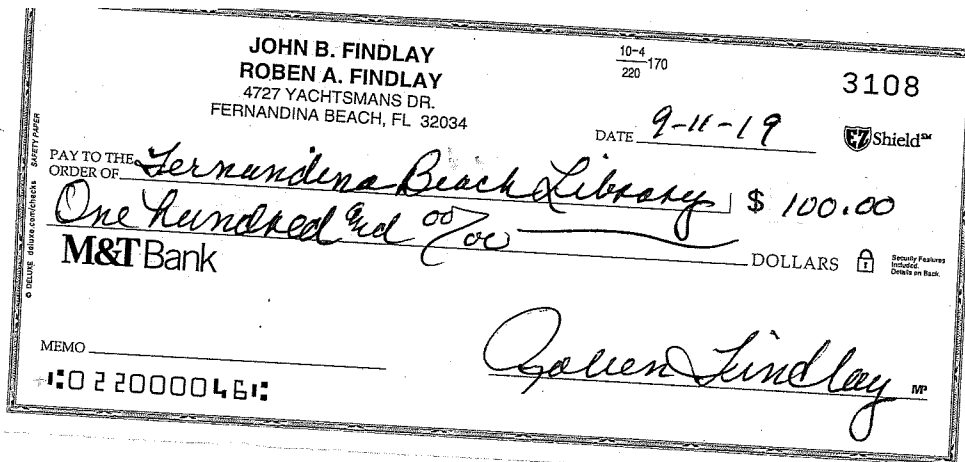 JOHN B. FINDLAY
ROBEN A. FINDLAY
4727 YACHTSMANS DR.
FERNANDINA BEACH, FL 32034
10-4
220
170
3108
DATE 9-11-19
EZ Shield℠
PAY TO THE
ORDER OF Fernandina Beach Library $ 100.00
One hundred and 00/00 DOLLARS
Security Features
Included.
Details on Back.
M&T Bank
MEMO
Roben Findlay MP
⑆022000046⑆
© DELUXE deluxe.com/checks SAFETY PAPER